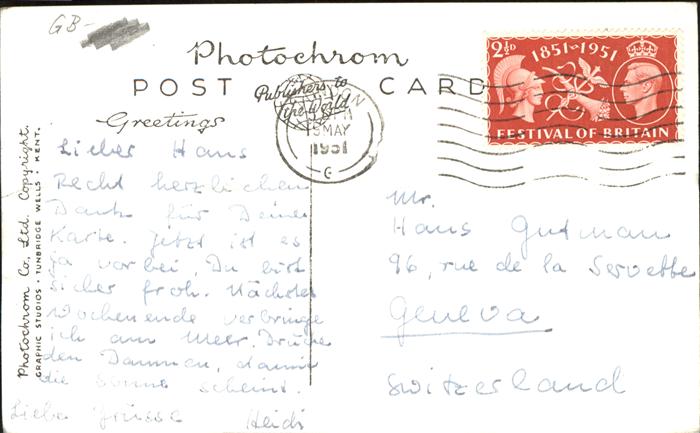 GB-
Photochrom
POST CARD
Publishers to
the World
Greetings
19 MAY
1951
2½D
1851-1951
FESTIVAL OF BRITAIN
Photochrom Co. Ltd. Copyright.
GRAPHIC STUDIOS • TUNBRIDGE WELLS • KENT.
Lieber Hans
Recht herzlichen
Dank für Deine
Karte. Jetzt ist es
ja vorbei, Du bist
sicher froh. Nächstes
Wochenende verbringe
ich am Meer. Drücke
den Daumen, damit
die Sonne scheint.
Liebe Grüsse Heidi
Mr.
Hans Gutman
96, rue de la Servette
Geneva
Switzerland